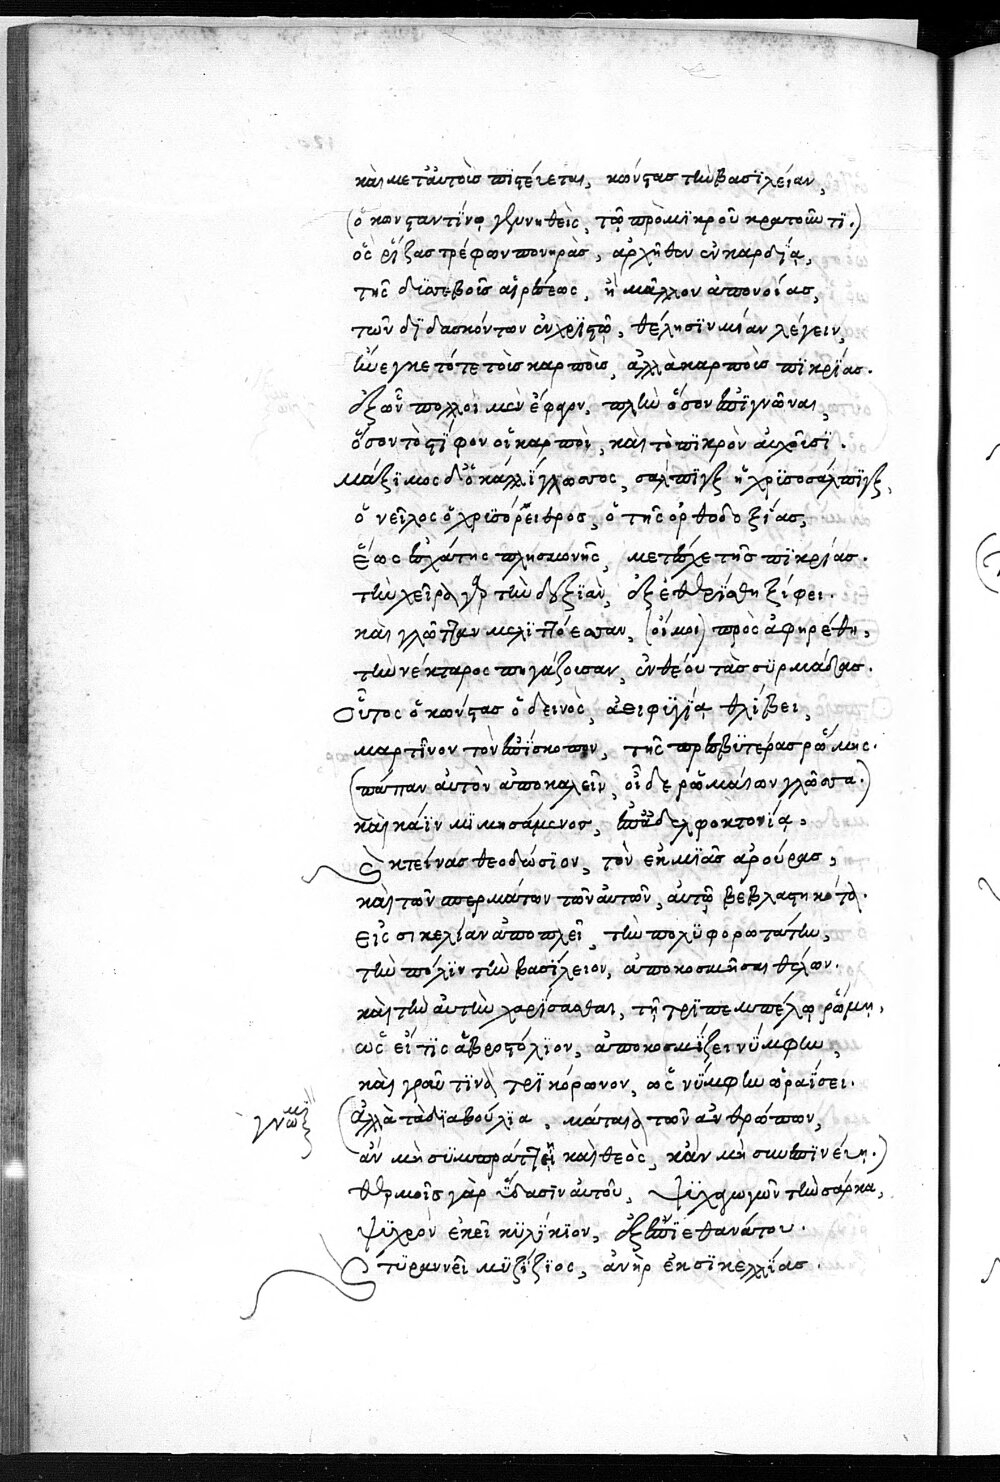 καὶ μετ' αὐτοὺς πιστεύεται, κώνστας τὴν βασιλείαν,
(ὁ κωνσταντίνῳ γεννηθεὶς, τῷ πρὸ μικροῦ κρατοῦντι.)
ὃς ῥίζας τρέφων πονηρὰς, ἀρχῆθεν ἐν καρδίᾳ,
τῆς δυσεβοῦς αἱρέσεως, ἢ μᾶλλον ἀπονοίας,
τῶν διδασκόντων ἐν χριστῷ, θέλησιν μίαν λέγειν,
ἤνεγκε τότε τοὺς καρποὺς, ἀλλὰ καρποὺς πικρίας.
ἐξ ὧν πολλοὶ μὲν ἔφαγον, πλὴν ὅσον ἐπιγνῶναι,
ὅσον τὸ στῦφον οἱ καρποὶ, καὶ τὸ πικρὸν αὐχοῦσι.
μάξιμος δ' ὁ καλλίγλωσσος, σάλπιγξ ἡ χρυσοσάλπιγξ,
ὁ νεῖλος ὁ χρυσόρειθρος, ὁ τῆς ὀρθοδοξίας,
ἕως ἐσχάτης πλησμονῆς, μετέσχε τῆς πικρίας.
τὴν χεῖρα γὰρ τὴν δεξιὰν, ἐξεθερίσθη ξίφει.
καὶ γλῶτταν μελιττόεσσαν, (οἴμοι) προσαφῃρέθη,
τὴν νέκταρος πηγάζουσαν, ἐνθέου τὰς συρμάδας.
Οὗτος ὁ κώνστας ὁ δεινὸς, ἀειφυγίᾳ θλίβει,
μαρτῖνον τὸν ἐπίσκοπον, τῆς πρεσβυτέρας ῥώμης.
(πάπαν αὐτὸν ἀποκαλεῖν, οἶδε ῥωμαίων γλῶσσα.)
καὶ κάϊν μιμησάμενος, ἐπ' ἀδελφοκτονίᾳ,
κτείνας θεοδώσιον, τὸν ἐκ μιᾶς ἀρούρας,
καὶ τῶν σπερμάτων τῶν αὐτῶν, αὐτῷ βεβλαστηκότα.
εἰς σικελίαν ἀποπλεῖ, τὴν πολυφορωτάτην,
τὴν πόλιν τὴν βασίλειον, ἀποκοσμῆσαι θέλων.
καὶ τὴν αὐτὴν χαρίσασθαι, τῇ τριπεμπέλῳ ῥώμῃ,
ὡς εἴ τις ἁβροστόλιον, ἀποκοσμίζει νύμφην,
καὶ γραῦν τινὰ τρικόρωνον, ὡς νύμφην ὡραΐσει.
γνωμι (ἀλλὰ τὰ διαβούλια, μάταια τῶν ἀνθρώπων,
ἂν μὴ συμπράττῃ καὶ θεὸς, κἂν μὴ συνεπινεύῃ.)
θερμοῖς γὰρ ὕδασιν αὐτοῦ, ψυχαγωγῶν τὴν σάρκα,
ψυχρὸν ἐκεῖ κυλίκιον, ἐξέπιε θανάτου.
τυραννεῖ μυζίζιος, ἀνὴρ ἐκ σικελλίας.